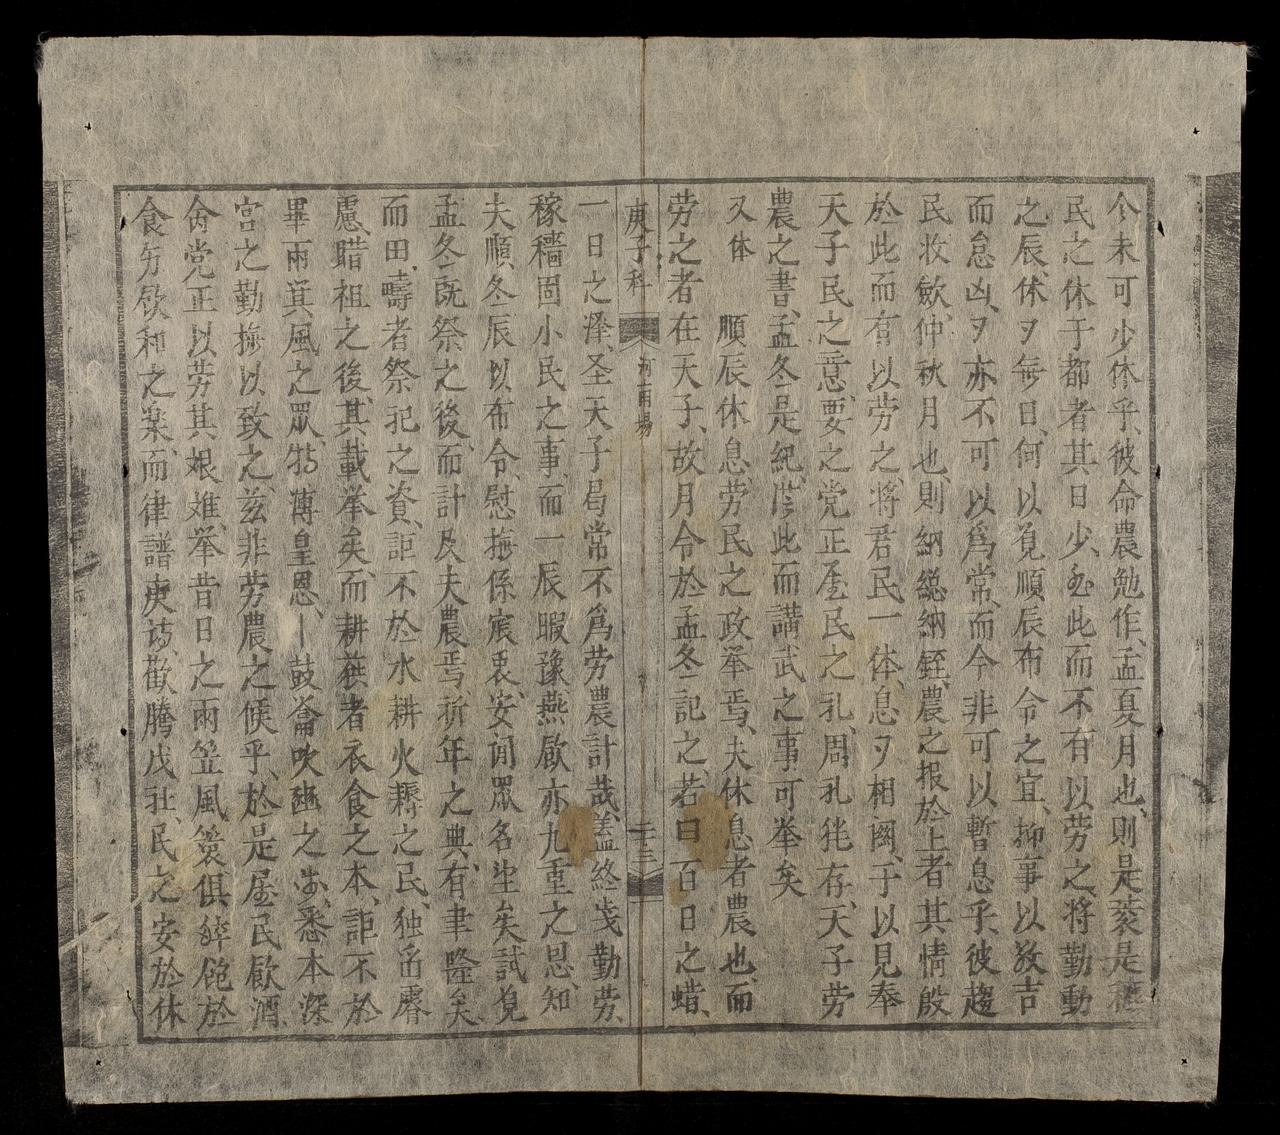 今未可少休乎、彼命農勉作、孟夏月也、則是蓘是穮
民之休于都者其日少、至此而不有以劳之、将勤動
之辰、休又無日、何以覓順辰布令之宜、抑事以教吉
而怠凶、又亦不可以爲常、而今非可以暫息乎、彼趨
民收斂、仲秋月也、則納緫納銍、農之报於上者其情殷
於此而有以劳之、将君民一体、息又相阂、于以見奉
天子民之意、要之党正屋民之礼、周礼犹存、天子劳
農之書、孟冬是紀、際此而講武之事可举矣
又体　順辰休息、劳民之政举焉、夫休息者農也、而
劳之者在天子、故月令於孟冬記之、若曰百日之蜡、
庚子科　河南場　二十三
一日之泽、圣天子曷常不爲劳農計哉、盖終歲勤劳、
稼穡固小民之事、而一辰暇豫燕飮亦九重之恩、知
夫順冬辰以布令、慰撫係宸衷、安閒眾名生矣試覓
孟冬既祭之後、而計及夫農焉、祈年之典、有聿隆矣、
而田疇者祭祀之資、詎不於水耕火耨之民、独岳睿
慮、腊祖之後、其載举矣、而耕获者衣食之本、詎不於
畢雨箕風之眾、特溥皇恩、一鼓龠吹豳之歩、悉本深
宫之勤撫以致之、茲非劳農之候乎、於是屋民飮酒、
命党正以劳其艰难、举昔日之雨笠風簑俱醉飽於
食芳飮和之楽、而律譜庚詩、歡騰戊社、民之安於休